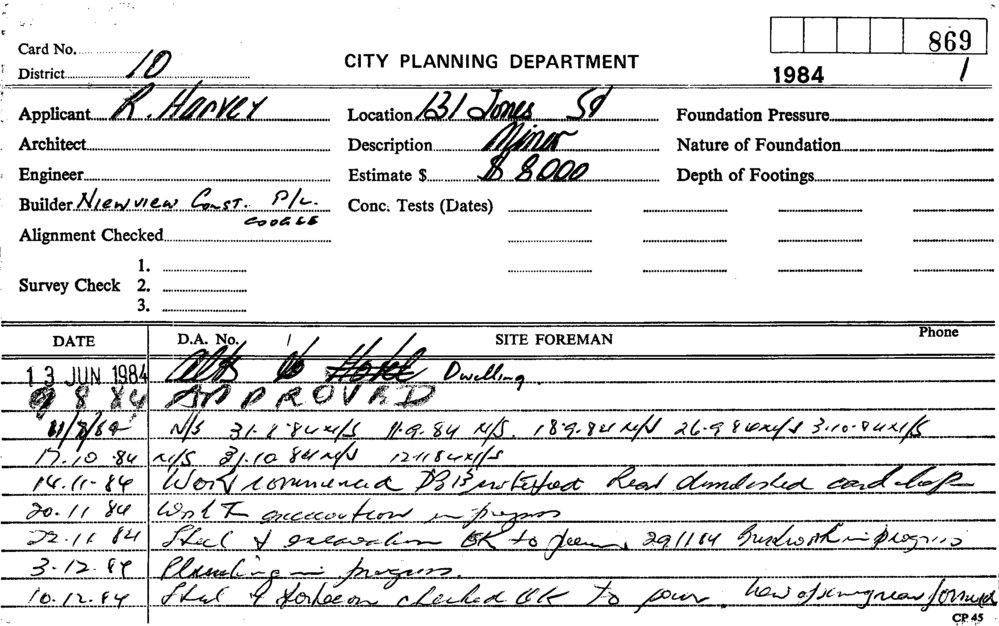 869
Card No.
District 10
CITY PLANNING DEPARTMENT
1984 1
Applicant R. Harvey Location 131 Jones St Foundation Pressure
Architect Description Minor Nature of Foundation
Engineer Estimate $ $ 8000 Depth of Footings
Builder Niewview Const. P/L. Conc. Tests (Dates)
COOGEE
Alignment Checked
1.
Survey Check 2.
3.
DATE D.A. No. SITE FOREMAN Phone
13 JUN 1984 Alts to Hotel Dwelling.
9 8 84 APPROVED
N/S 31.8.84 N/S 11.9.84 N/S. 18.9.84 N/S 26.9.84 N/S 3.10.84 N/S
17.10.84 N/S 31.10.84 N/S 12.11.84 N/S
14.11.84 Work commenced Rear demolished
20.11.84 Work excavation in progress
22.11.84 Steel & excavation OK to pour. 29.11.84 Brickwork in progress
3.12.84 in progress.
10.12.84 Steel & checked OK to pour.
CP 45